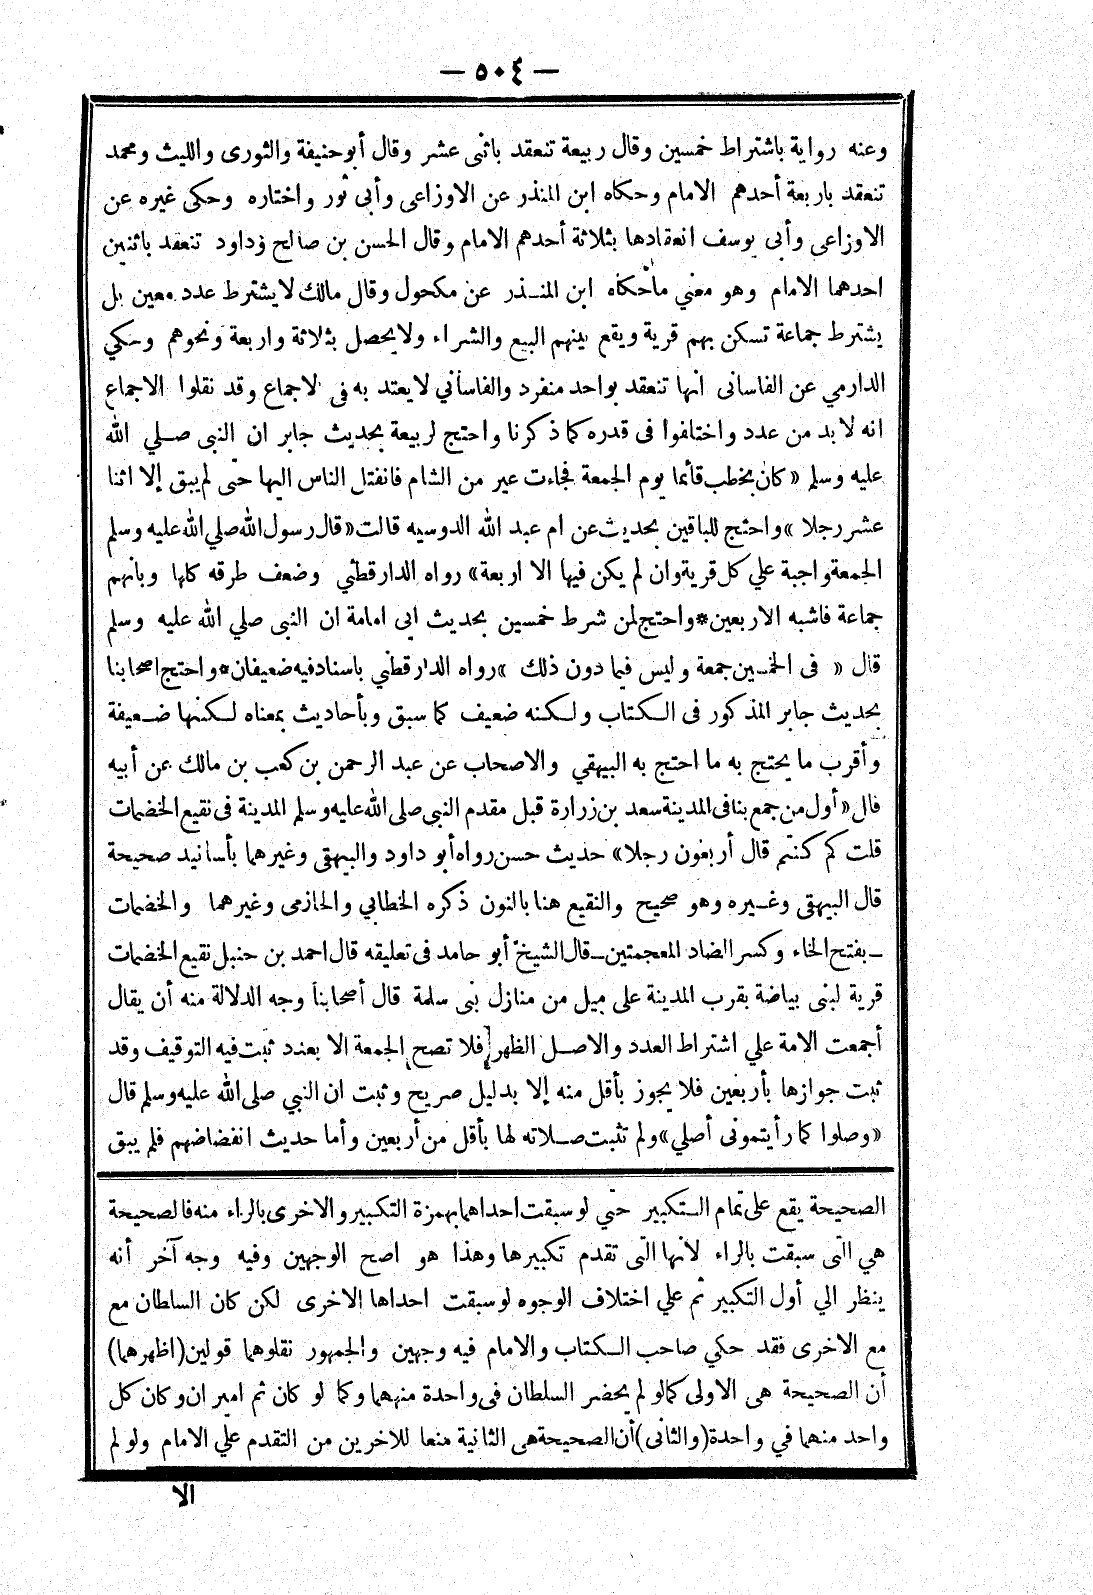 — ٥٠٤ —
وعنه رواية باشتراط خمسين وقال ربيعة تنعقد باثنى عشر وقال أبو حنيفة والثورى والليث ومحمد
تنعقد باربعة أحدهم الامام وحكاه ابن المنذر عن الاوزاعى وأبى ثور واختاره وحكى غيره عن
الاوزاعى وأبى يوسف انعقادها بثلاثة أحدهم الامام وقال الحسن بن صالح وداود تنعقد باثنين
احدهما الامام وهو معني ماحكاه ابن المنـذر عن مكحول وقال مالك لا يشترط عدد معين بل
يشترط جماعة تسكن بهم قرية ويقع بينهم البيع والشراء ولا يحصل بثلاثة واربعة ونحوهم وحكي
الدارمي عن القاسانى انها تنعقد بواحد منفرد والقاساني لا يعتد به فى الاجماع وقد نقلوا الاجماع
انه لا بد من عدد واختلفوا فى قدره كما ذكرنا واحتج لربيعة بحديث جابر ان النبى صـلي الله
عليه وسلم «كان يخطب قائما يوم الجمعة فجاءت عير من الشام فانفتل الناس اليها حتى لم يبق إلا اثنا
عشر رجلا» واحتج للباقين بحديث عن ام عبد الله الدوسيه قالت «قال رسول الله صلي الله عليه وسلم
الجمعة واجبة علي كل قرية وان لم يكن فيها الا اربعة» رواه الدارقطني وضعف طرقه كلها وبأنهم
جماعة فاشبه الاربعين * واحتج لمن شرط خمسين بحديث ابى امامة ان النبى صلي الله عليه وسلم
قال « فى الخمـسين جمعة وليس فيما دون ذلك » رواه الدارقطني باسناد فيه ضعيفان * واحتج اصحابنا
بحديث جابر المذكور فى الـكتاب ولـكنه ضعيف كما سبق وبأحاديث بمعناه لـكنها ضـعيفة
وأقرب ما يحتج به ما احتج به البيهقي والاصحاب عن عبد الرحمن بن كعب بن مالك عن أبيه
قال «أول من جمع بنا فى المدينة سعد بن زرارة قبل مقدم النبى صلى الله عليه وسلم المدينة فى نقيع الخضمات
قلت كم كنتم قال أربعون رجلا» حديث حسن رواه أبو داود والبيهقى وغيرهما بأسانيد صحيحة
قال البيهقى وغـيره وهو صحيح والنقيع هنا بالنون ذكره الخطابي والحازمى وغيرهما والخضمات
ـ بفتح الخاء وكسر الضاد المعجمتين ـ قال الشيخ أبو حامد فى تعليقه قال احمد بن حنبل نقيع الخضمات
قرية لبنى بياضة بقرب المدينة على ميل من منازل بنى سلمة قال أصحابنا وجه الدلالة منه أن يقال
أجمعت الامة علي اشتراط العدد والاصـل الظهر فلا تصح الجمعة الا بعدد ثبت فيه التوقيف وقد
ثبت جوازها بأربعين فلا يجوز بأقل منه إلا بدليل صريح وثبت ان النبي صلى الله عليه وسلم قال
«وصلوا كما رأيتمونى أصلي» ولم تثبت صـلاته لها بأقل من أربعين وأما حديث انفضاضهم فلم يبق
الصحيحة يقع على تمام الـتكبير حتي لو سبقت احداهما بهمزة التكبير والاخرى بالراء منه فالصحيحة
هي التى سبقت بالراء لانها التى تقدم تكبيرها وهذا هو اصح الوجهين وفيه وجه آخر أنه
ينظر الي أول التكبير ثم علي اختلاف الوجوه لو سبقت احداها الاخرى لكن كان السلطان مع
مع الاخرى فقد حكي صاحب الـكتاب والامام فيه وجهين والجمهور نقلوهما قولين (اظهرهما)
أن الصحيحة هى الاولى كما لو لم يحضر السلطان فى واحدة منهما وكما لو كان ثم اميران وكان كل
واحد منهما في واحدة (والثانى) أن الصحيحة هى الثانية منعا للاخرين من التقدم علي الامام ولو لم
الا